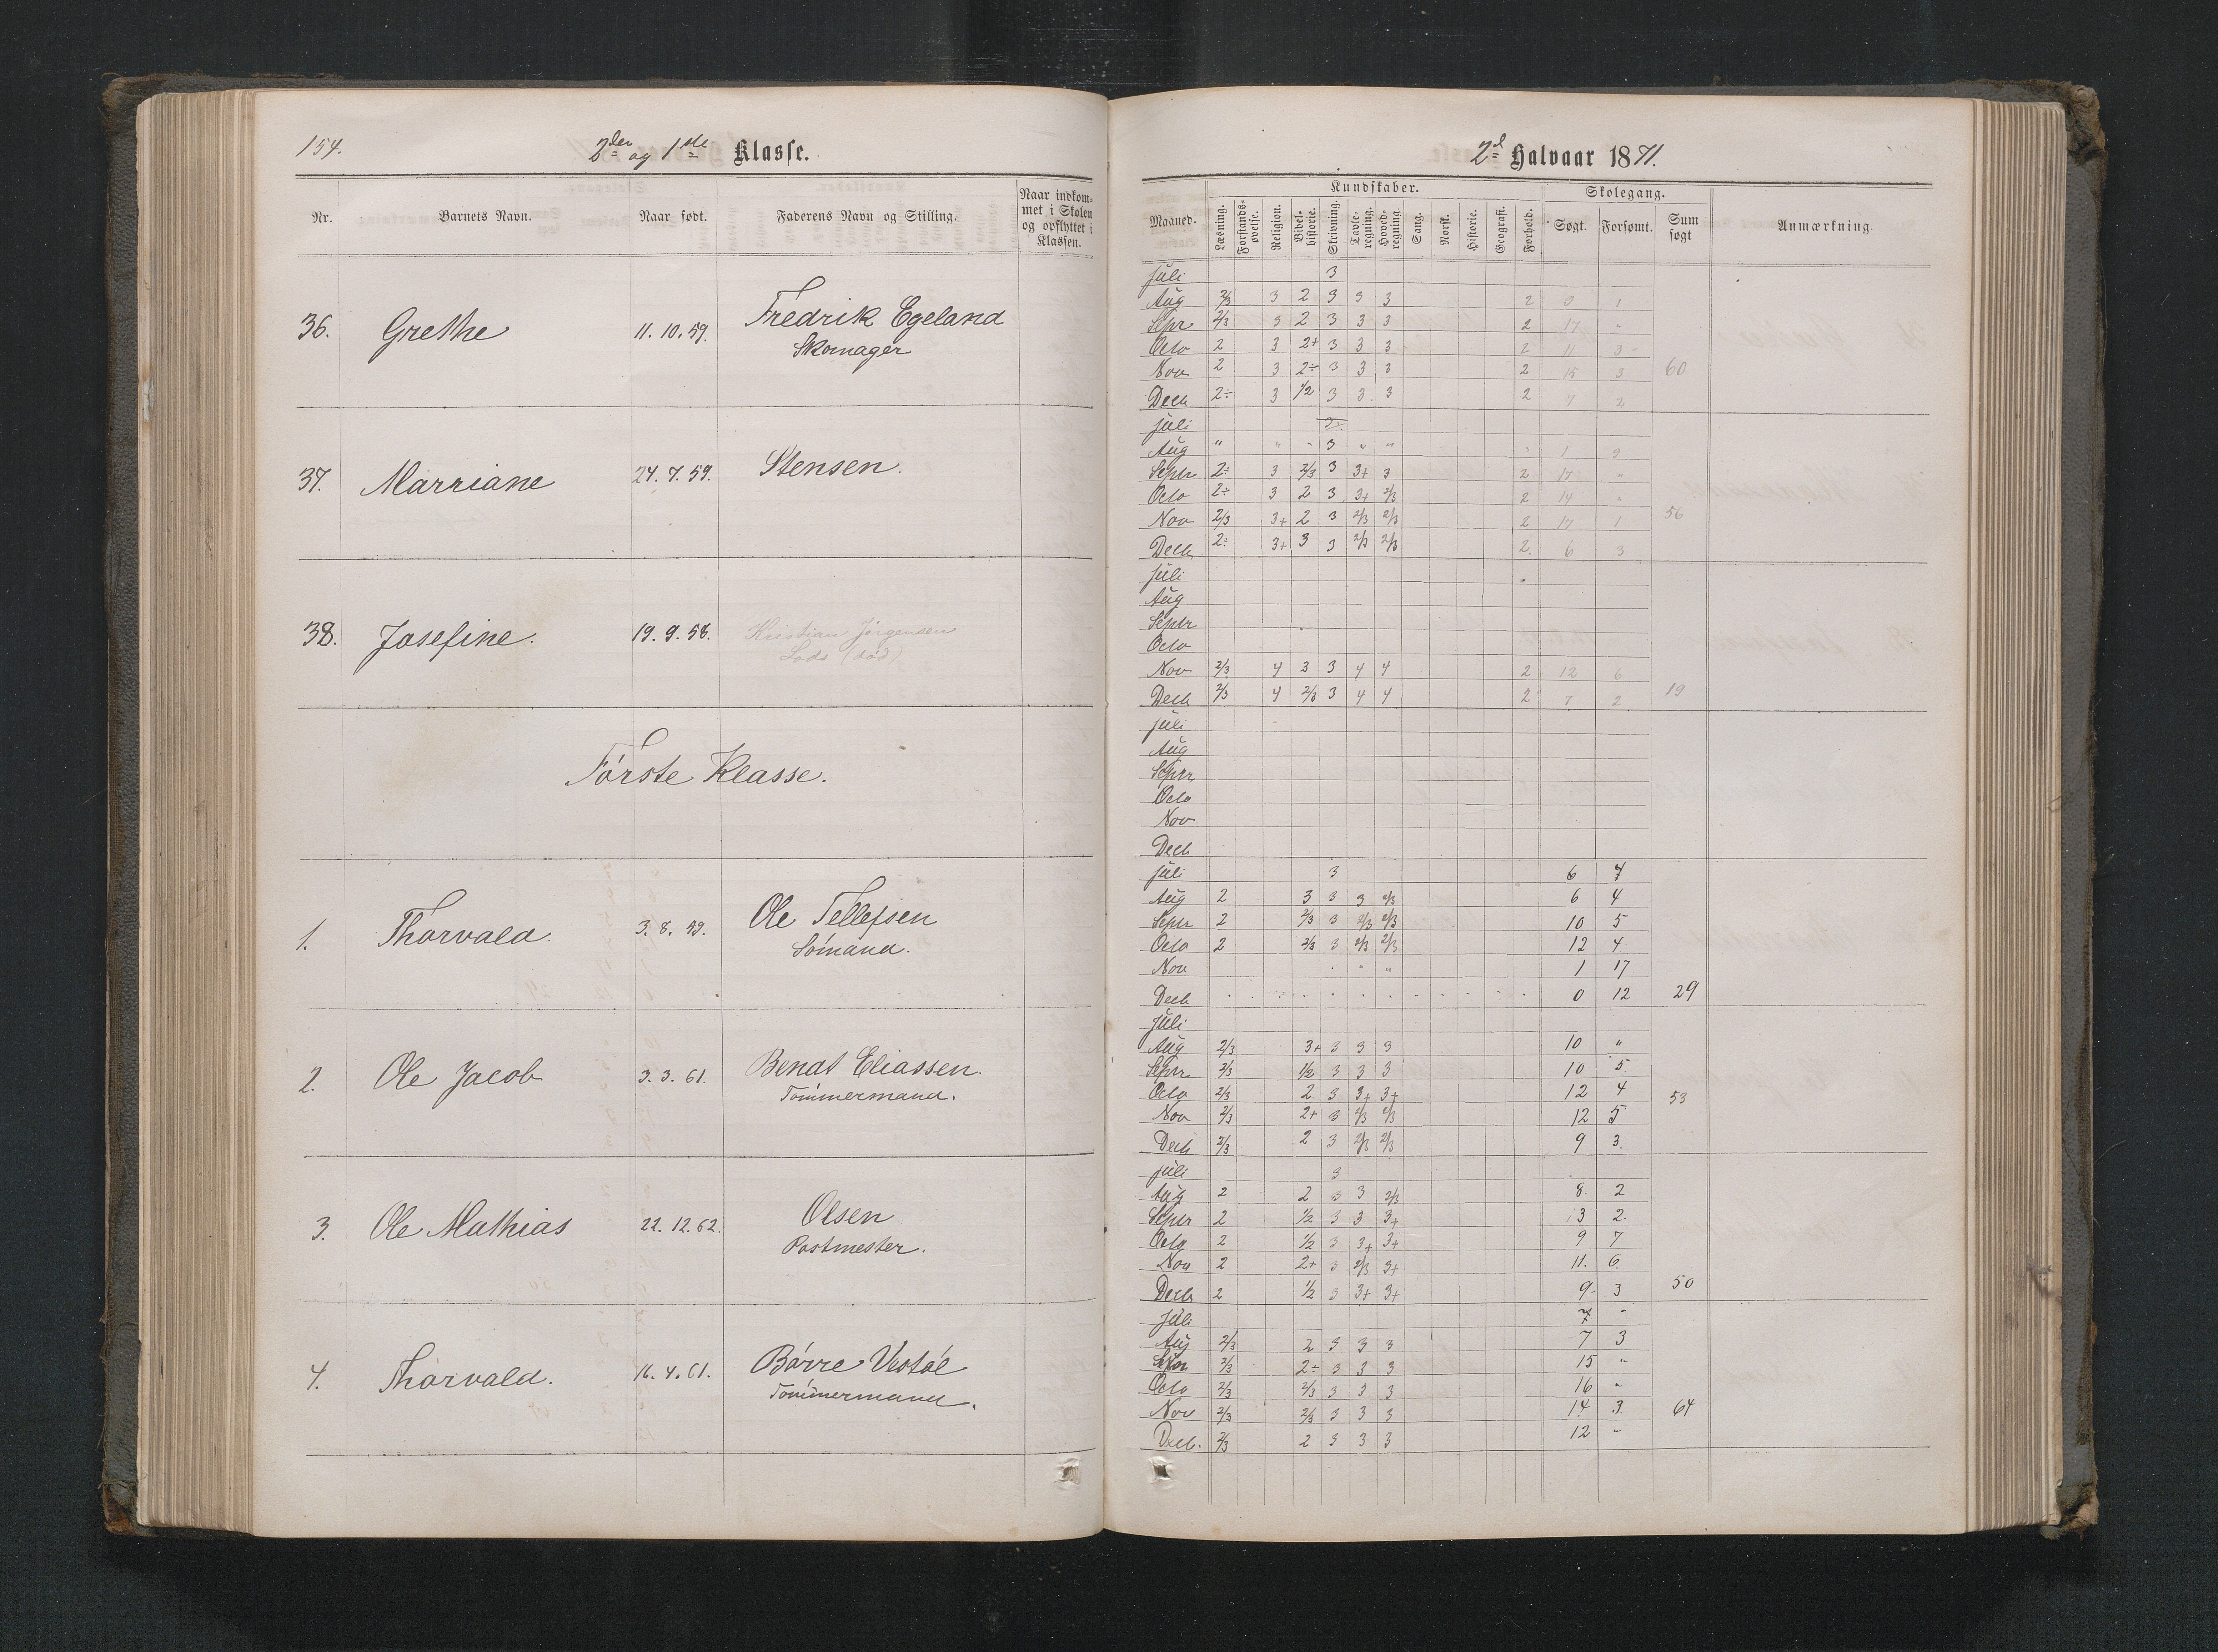 154.
2den og 1ste Klasse.
Nr.
Barnets Navn.
Naar født.
Faderens Navn og Stilling.
Naar indkom-
met i Skolen
og opflyttet i
Klassen.
36. Grethe 11.10.59. Fredrik Egeland
Skomager
37. Marriane 24.7.59. Stensen.
38. Josefine. 19.9.58. Kristian Jörgensen
Lods (död)
Förste Klasse.
1. Thorvald. 3.8.59. Ole Tellefsen
Sömand.
2. Ole Jacob 3.3.61. Bendt Eliassen.
Tömmermand.
3. Ole Mathias 22.12.62. Olsen
Postmester.
4. Thorvald. 16.4.61. Börre Vestöl
Tömmermand.
2d Halvaar 1871.
Maaned.
Kundskaber.
Læsning.
Forstands-
øvelse.
Religion.
Bibel-
historie.
Skrivning.
Tavle-
regning.
Hoved-
regning.
Sang.
Norsk.
Historie.
Geografi.
Forhold.
Skolegang.
Søgt.
Forsømt.
Sum
søgt
Anmærkning.
Juli 3
Aug 2/3 3 2 3 3 3 2 1
Sepr 2/3 3 2 3 3 3 2 17 "
Octo 2 3 2+ 3 3 3 2 3
Nov 2 3 2÷ 3 3 3 2 15 3 60
Decb 2÷ 3 1/2 3 3 3 2 7 2
Juli
Aug " " " 3 " " 1
Septr 2÷ 3 2/3 3 3+ 3 2 17 "
Octo 2÷ 3 2 3 3+ 2/3 2 14 "
Nov 2/3 3+ 2 3 2/3 2/3 2 17 1 56
Decb 2÷ 3+ 3 3 2/3 2/3 2 6 3
Juli
Aug
Septr
Octo
Nov 2/3 4 3 3 4 4 2 12 6
Decb 2/3 4 2/3 3 4 4 2 7 2 19
Juli
Aug
Septr
Octo
Nov
Decb
Juli 3 6 7
Aug 2 3 3 3 2/3 6 4
Septr 2 2/3 3 2/3 2/3 10 5
Octo 2 2/3 3 2/3 2/3 12 4
Nov " " 1 17
Decb 0 12 29
Juli
Aug 2/3 3+ 3 3 3 10 "
Septr 2/3 1/2 3 3 3 10 5
Octo 2/3 2 3 3+ 3+ 12 4 53
Nov 2/3 2+ 3 2/3 2/3 12 5
Decb 2/3 2 3 2/3 2/3 9 3
Juli 3
Aug 2 2 3 3 2/3 8 2
Septr 2 1/2 3 3 3+ 13 2
Octo 2 1/2 3 3+ 3+ 9 7
Nov 2 2+ 3 2/3 3+ 11 6
Decb 2 1/2 3 3+ 3+ 9 3 50
Juli "
Aug 2/3 2 3 3 3 7 3
Sepr 2/3 2÷ 3 3 3 15 "
Octo 2/3 2/3 3 3 3 16 "
Nov 2/3 2/3 3 3 3 14 3 64
Decb. 2/3 2 3 3 3 12 "